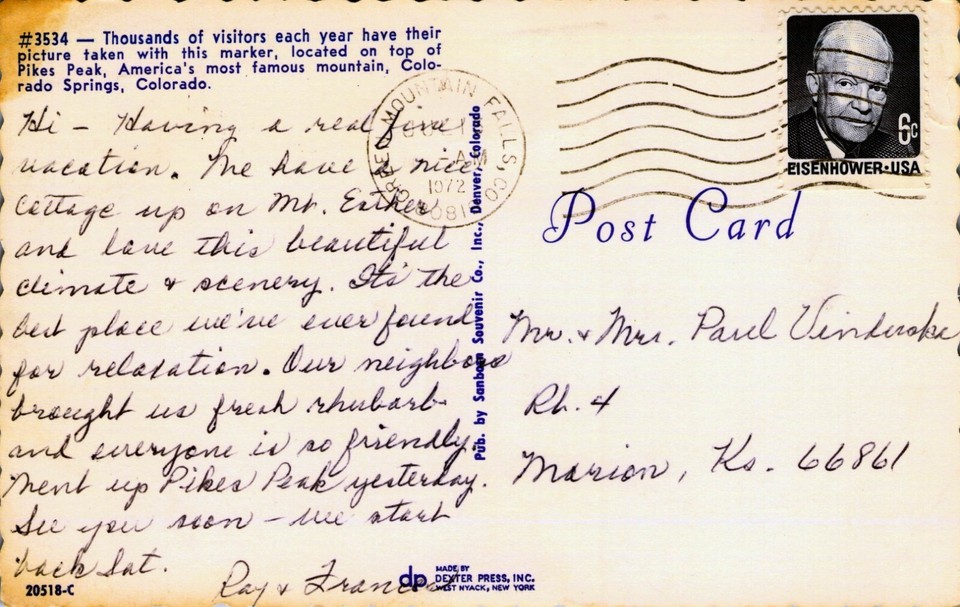 #3534 — Thousands of visitors each year have their
picture taken with this marker, located on top of
Pikes Peak, America's most famous mountain, Colo-
rado Springs, Colorado.
Hi - Having a real fine
vacation. We have a nice
cottage up on Mt. Esther
and love this beautiful
climate & scenery. It's the
best place we've ever found
for relaxation. Our neighbors
brought us fresh rhubarb
and everyone is so friendly.
Went up Pikes Peak yesterday.
See you soon - we start
back Sat.
Ray & Frances
20518-C
GREEN MOUNTAIN FALLS, CO
AM
1972
Pub. by Sanborn Souvenir Co., Inc., Denver, Colorado
6c
EISENHOWER·USA
Post Card
Mr. & Mrs. Paul
Rt. 4
Marion, Ks. 66861
dp
MADE BY
DEXTER PRESS, INC.
WEST NYACK, NEW YORK